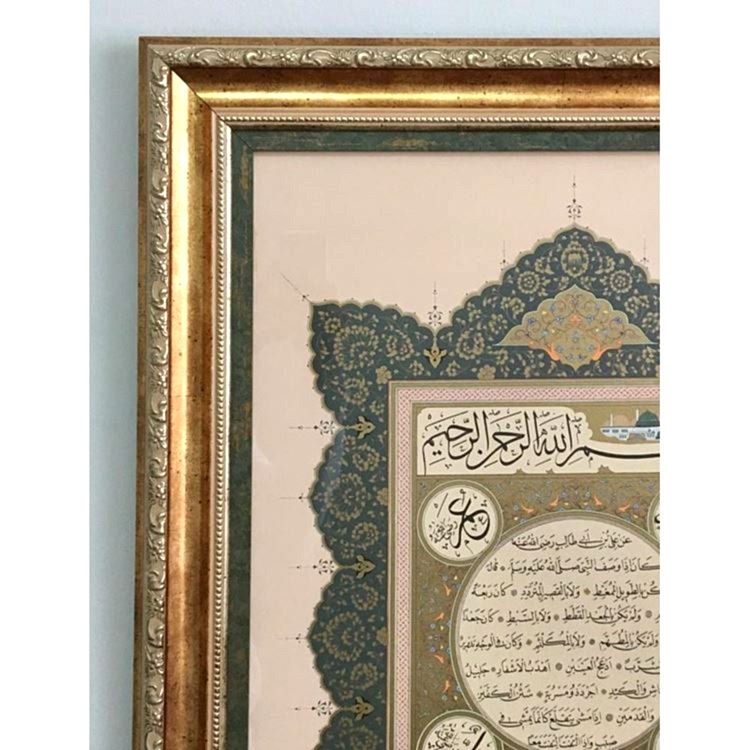 ـم الله الرحمن الرحيم
عمر رضي الله عنه
عن علي بن ابي طالب رضي الله عنه
كان اذا وصف النبي صلى الله عليه وسلم • قال
يكن بالطويل الممغط • ولا بالقصير المتردد • كان ربعة
• ولم يكن بالجعد القطط • ولا بالسبط • كان جعدا
• ولم يكن بالمطهم • ولا بالمكلثم • وكان في الوجه تدوير
مشرب • ادعج العينين • اهدب الاشفار • جليل
المشاش والكتد • اجرد ذو مسربة • شثن الكفين
والقدمين • اذا مشى يتقلع كانما يمشي في
صبب واذا التفت التفت معا